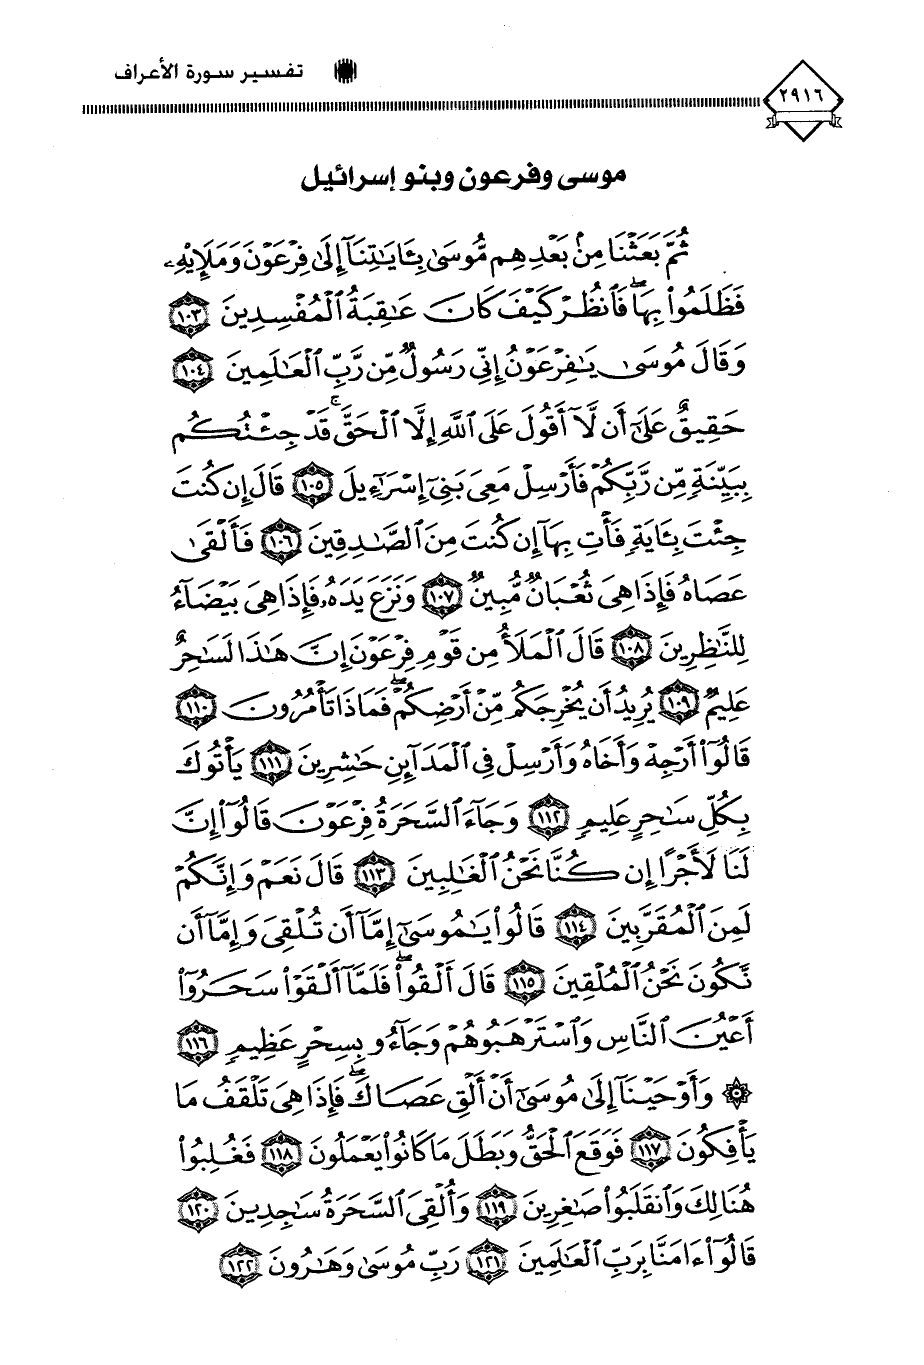 ٢٩١٦
تفسير سورة الأعراف
موسى وفرعون وبنو إسرائيل
ثُمَّ بَعَثْنَا مِنۢ بَعْدِهِم مُّوسَىٰ بِـَٔايَـٰتِنَآ إِلَىٰ فِرْعَوْنَ وَمَلَإِيْهِۦ
فَظَلَمُوا۟ بِهَا ۖ فَٱنظُرْ كَيْفَ كَانَ عَـٰقِبَةُ ٱلْمُفْسِدِينَ ١٠٣
وَقَالَ مُوسَىٰ يَـٰفِرْعَوْنُ إِنِّى رَسُولٌ مِّن رَّبِّ ٱلْعَـٰلَمِينَ ١٠٤
حَقِيقٌ عَلَىٰٓ أَن لَّآ أَقُولَ عَلَى ٱللَّهِ إِلَّا ٱلْحَقَّ ۚ قَدْ جِئْتُكُم
بِبَيِّنَةٍ مِّن رَّبِّكُمْ فَأَرْسِلْ مَعِىَ بَنِىٓ إِسْرَٰٓءِيلَ ١٠٥ قَالَ إِن كُنتَ
جِئْتَ بِـَٔايَةٍ فَأْتِ بِهَآ إِن كُنتَ مِنَ ٱلصَّـٰدِقِينَ ١٠٦ فَأَلْقَىٰ
عَصَاهُ فَإِذَا هِىَ ثُعْبَانٌ مُّبِينٌ ١٠٧ وَنَزَعَ يَدَهُۥ فَإِذَا هِىَ بَيْضَآءُ
لِلنَّـٰظِرِينَ ١٠٨ قَالَ ٱلْمَلَأُ مِن قَوْمِ فِرْعَوْنَ إِنَّ هَـٰذَا لَسَـٰحِرٌ
عَلِيمٌ ١٠٩ يُرِيدُ أَن يُخْرِجَكُم مِّنْ أَرْضِكُمْ ۖ فَمَاذَا تَأْمُرُونَ ١١٠
قَالُوٓا۟ أَرْجِهْ وَأَخَاهُ وَأَرْسِلْ فِى ٱلْمَدَآئِنِ حَـٰشِرِينَ ١١١ يَأْتُوكَ
بِكُلِّ سَـٰحِرٍ عَلِيمٍ ١١٢ وَجَآءَ ٱلسَّحَرَةُ فِرْعَوْنَ قَالُوٓا۟ إِنَّ
لَنَا لَأَجْرًا إِن كُنَّا نَحْنُ ٱلْغَـٰلِبِينَ ١١٣ قَالَ نَعَمْ وَإِنَّكُمْ
لَمِنَ ٱلْمُقَرَّبِينَ ١١٤ قَالُوا۟ يَـٰمُوسَىٰٓ إِمَّآ أَن تُلْقِىَ وَإِمَّآ أَن
نَّكُونَ نَحْنُ ٱلْمُلْقِينَ ١١٥ قَالَ أَلْقُوا۟ ۖ فَلَمَّآ أَلْقَوْا۟ سَحَرُوٓا۟
أَعْيُنَ ٱلنَّاسِ وَٱسْتَرْهَبُوهُمْ وَجَآءُو بِسِحْرٍ عَظِيمٍ ١١٦
۞ وَأَوْحَيْنَآ إِلَىٰ مُوسَىٰٓ أَنْ أَلْقِ عَصَاكَ ۖ فَإِذَا هِىَ تَلْقَفُ مَا
يَأْفِكُونَ ١١٧ فَوَقَعَ ٱلْحَقُّ وَبَطَلَ مَا كَانُوا۟ يَعْمَلُونَ ١١٨ فَغُلِبُوا۟
هُنَالِكَ وَٱنقَلَبُوا۟ صَـٰغِرِينَ ١١٩ وَأُلْقِىَ ٱلسَّحَرَةُ سَـٰجِدِينَ ١٢٠
قَالُوٓا۟ ءَامَنَّا بِرَبِّ ٱلْعَـٰلَمِينَ ١٢١ رَبِّ مُوسَىٰ وَهَـٰرُونَ ١٢٢